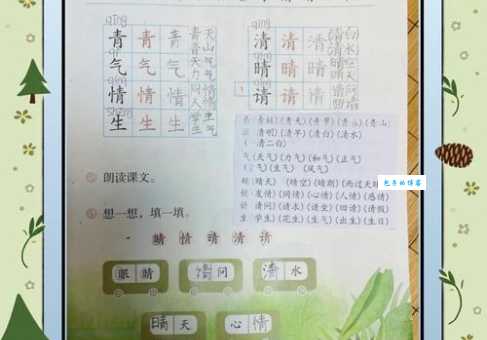 qīng
青 青 青 青 天
青 山
qì
气 气 气 天 气
力 气
qíng
情 情 情 同 情
人 情
shēng
生 生 生 学 生
生 气
qīng
清 清 清 清 白
清 水
qíng
晴 晴 晴 晴 空
晴 天
qǐng
请 请 请 请 问
清明)(清早)(清白)(清水)
清二白)
气(天气)(力气)(和气)(正气)
气)(生气)
晴天)(晴空)(晴朗)(雨过天晴
友情)(同情)(心情)(人情)(感情)
请问)(请水)(请坐)(回请)(请假)
生 学生)(花生)(生气)(出生)(生日)
朗读课文。
想一想,填一填。
睛 情 晴 清 请
眼 睛 请 问 清 水
晴 天 心 情